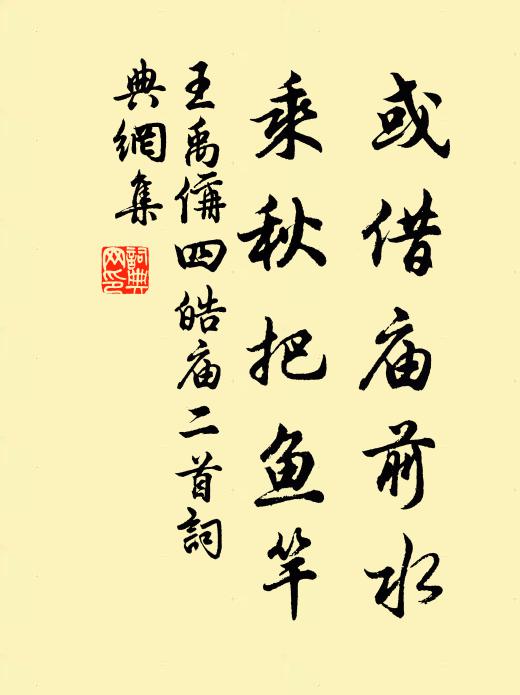 或借庙前水
乘秋把鱼竿
王禹偁四皓庙二首詞
典網集
詞典网印